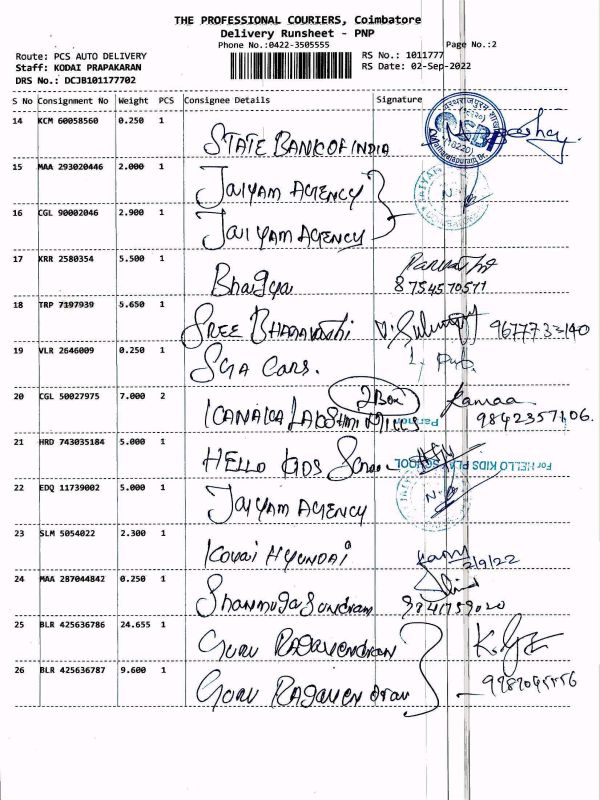 THE PROFESSIONAL COURIERS, Coimbatore
Delivery Runsheet - PNP
Phone No.:0422-3505555 Page No.:2
Route: PCS AUTO DELIVERY RS No.: 1011777
Staff: KODAI PRAPAKARAN RS Date: 02-Sep-2022
DRS No.: DCJB101177702
S No Consignment No Weight PCS Consignee Details Signature
14 KCM 60058560 0.250 1
STATE BANK OF INDIA
15 MAA 293020446 2.000 1
JAIYAM AGENCY
16 CGL 90002046 2.900 1
JAIYAM AGENCY
17 KRR 2580354 5.500 1
Bhagya 8754570571
18 TRP 7197939 5.650 1
SREE
19 VLR 2646009 0.250 1
SGA Cars.
20 CGL 50027975 7.000 2 2 Box
9842357106.
21 HRD 743035184 5.000 1
HELLO KIDS For HELLO KIDS PLAY SCHOOL
22 EDQ 11739002 5.000 1
JAIYAM AGENCY
23 SLM 5054022 2.300 1
KOVAI HYUNDAI 2/9/22
24 MAA 287044842 0.250 1
Shanmuga Sundram
25 BLR 425636786 24.655 1
GURU RAGAVENDRAN
26 BLR 425636787 9.600 1
GURU RAGAVENDRAN